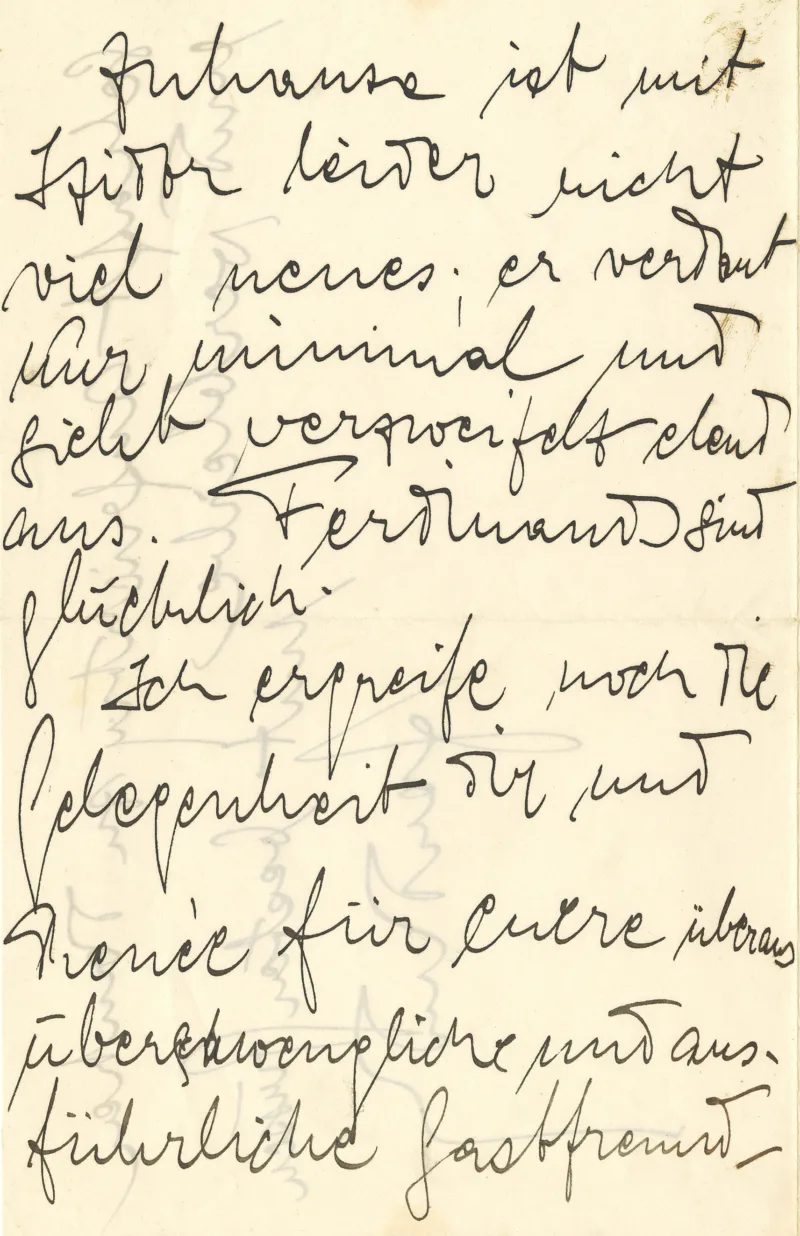 Zuhause ist mit
Isidor leider nicht
viel neues; er verdaut
nur minimal und
sieht verzweifelt elend
aus. Ferdinands sind
glücklich.
Ich ergreife noch die
Gelegenheit dir und
Renée für Euere überaus
überschwengliche und aus-
führliche Gastfreund-